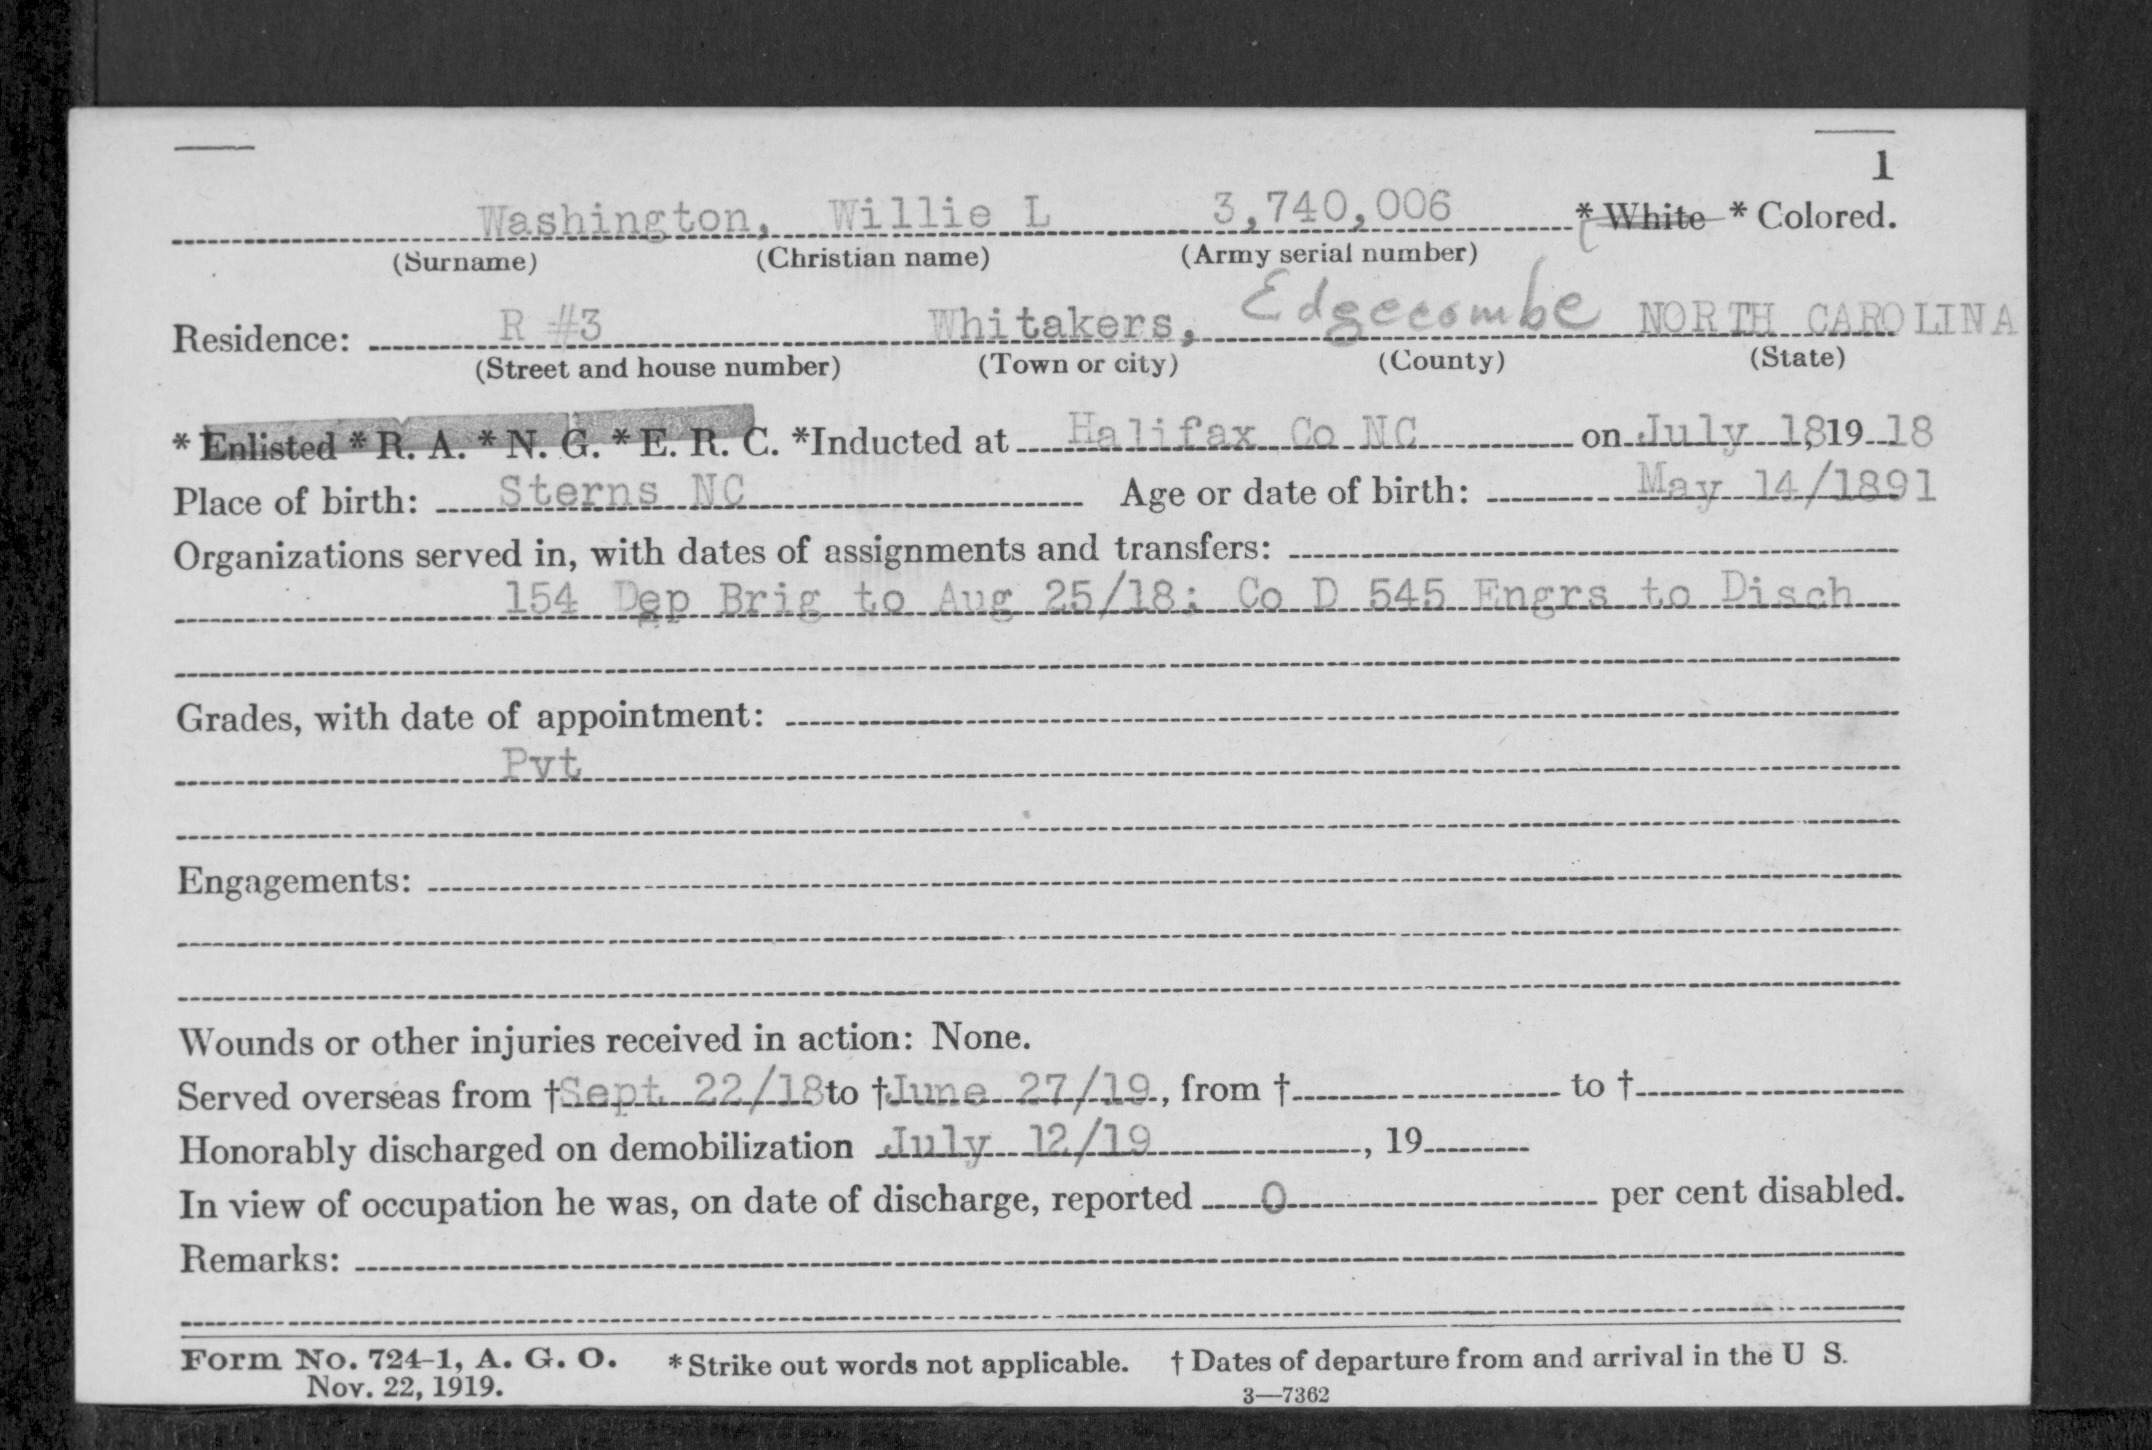 1
Washington, Willie L 3,740,006 * White * Colored.
(Surname) (Christian name) (Army serial number)
Residence: R #3 Whitakers, Edgecombe NORTH CAROLINA
(Street and house number) (Town or city) (County) (State)
* Enlisted * R. A. * N. G. * E. R. C. *Inducted at Halifax Co NC on July 18, 19 18
Place of birth: Sterns NC Age or date of birth: May 14/1891
Organizations served in, with dates of assignments and transfers:
154 Dep Brig to Aug 25/18; Co D 545 Engrs to Disch
Grades, with date of appointment:
Pvt
Engagements:
Wounds or other injuries received in action: None.
Served overseas from †Sept 22/18 to †June 27/19, from † to †
Honorably discharged on demobilization July 12/19, 19
In view of occupation he was, on date of discharge, reported 0 per cent disabled.
Remarks:
Form No. 724-1, A. G. O. * Strike out words not applicable. † Dates of departure from and arrival in the U S.
Nov. 22, 1919. 3—7362